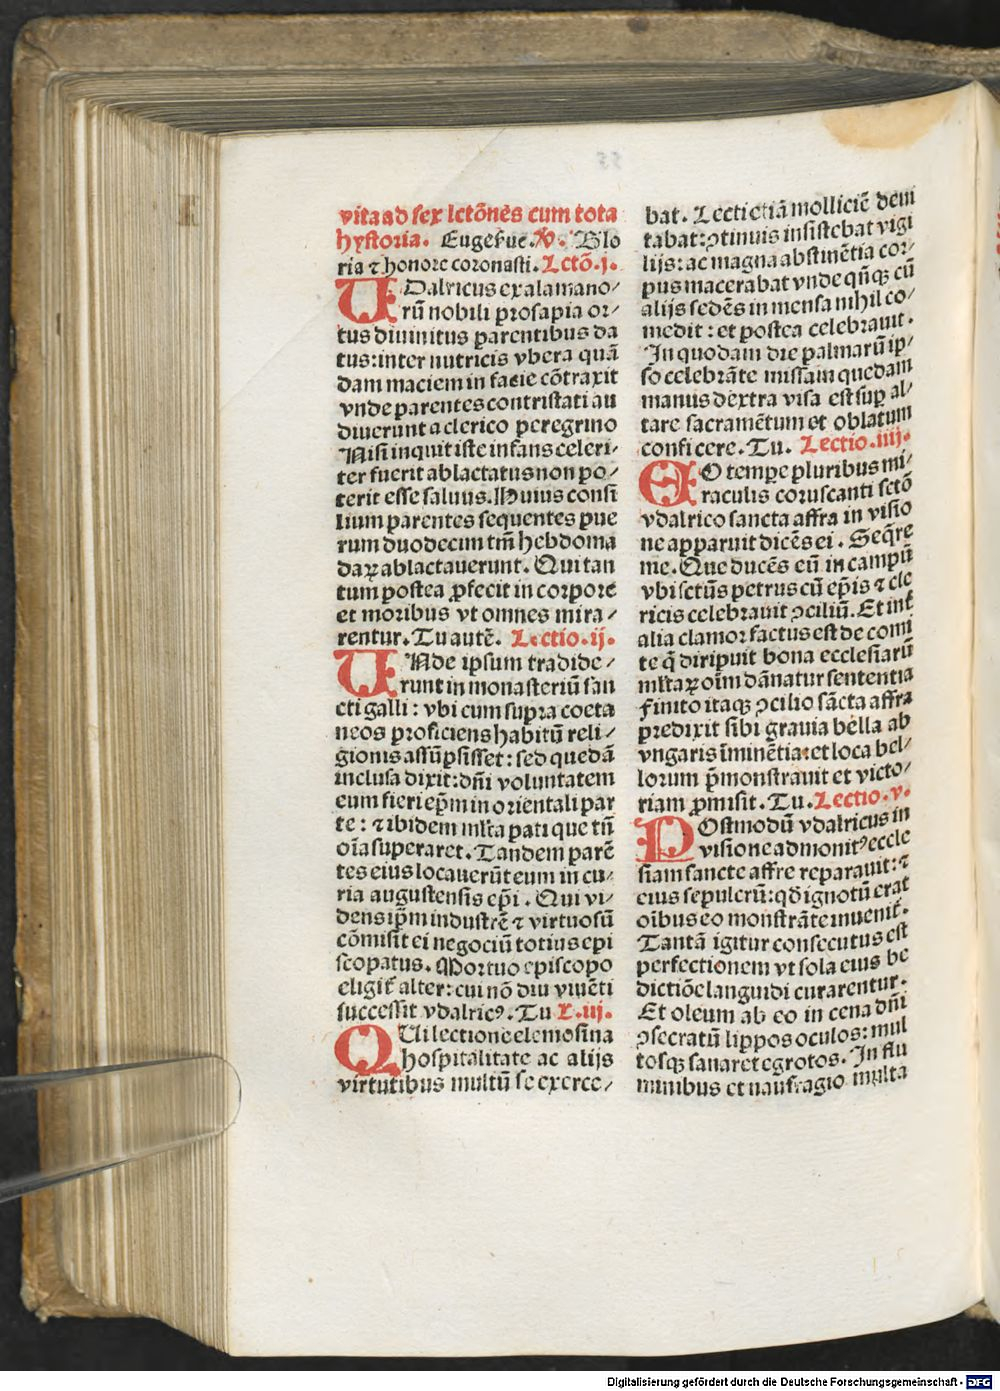 vita ad sex lctōnes cum tota
hystoria. Euge ẜue. ꝟ. Glo
ria ⁊ honore coronasti. Lctō. j.
UDalricus ex alamano⸗
rū nobili prosapia or⸗
tus diuinitus parentibus da
tus: inter nutricis vbera quā
dam maciem in facie cōtraxit
vnde parentes contristati au
diuerunt a clerico peregrino
Nisi inquit iste infans celeri⸗
ter fuerit ablactatus non po⸗
terit esse saluus. Huius consi
lium parentes sequentes pue
rum duodecim tm̄ hebdoma
daꝝ ablactauerunt. Qui tan
tum postea ꝓfecit in corpore
et moribus vt omnes mira⸗
rentur. Tu autē. Lectio. ij.
UNde ipsum tradide⸗
runt in monasteriū san
cti galli: vbi cum supra coeta
neos proficiens habitū reli⸗
gionis assūpsisset: sed quedā
inclusa dixit: dn̄i voluntatem
eum fieri ep̄m in orientali par
te: ⁊ ibidem ml̄ta pati que tn̄
oīa superaret. Tandem parē
tes eius locauerūt eum in cu⸗
ria augustensis ep̄i. Qui vi⸗
dens ip̄m industrē ⁊ virtuosū
cōmisit ei negociū totius epi
scopatus. Mortuo episcopo
eligit᷑ alter: cui nō diu viuēti
successit vdalricꝰ. Tu L. iij.
QUi lectione elemosina
hospitalitate ac alijs
virtutibus multū se exerce⸗
bat. Lecti etiā molliciē deui
tabat: ꝯtinuis insistebat vigi
lijs: ac magna abstinētia cor⸗
pus macerabat vnde qn̄qꝫ cū
alijs sedēs in mensa nihil co⸗
medit: et postea celebrauit.
In quodam die palmarū ip⸗
so celebrāte missam quedam
manus dextra visa est suꝑ al⸗
tare sacramētum et oblatum
conficere. Tu. Lectio. iiij.
EO tempe pluribus mi⸗
raculis coruscanti sctō
vdalrico sancta affra in visio
ne apparuit dicēs ei. Seq̄re
me. Que ducēs eū in campū
vbi sctūs petrus cū ep̄is ⁊ cle
ricis celebrauit ꝯciliū. Et int̄
alia clamor factus est de comi
te q̄ diripuit bona ecclesiarū
ml̄taꝝ oīm dānatur sententia
Finito itaqꝫ ꝯcilio sācta affra
predixit sibi grauia bella ab
vngaris īminētia: et loca bel⸗
lorum p̄monstrauit et victo⸗
riam ꝓmisit. Tu. Lectio. v.
POstmodū vdalricus in
visione admonitꝰ eccle
siam sancte affre reparauit: ⁊
eius sepulcrū: qd̄ ignotū erat
oībus eo monstrāte inuenit.
Tantā igitur consecutus est
perfectionem vt sola eius be
dictiōe languidi curarentur.
Et oleum ab eo in cena dn̄i
ꝯsecratū lippos oculos: mul
tosqꝫ sanaret egrotos. In flu
minibus et naufragio multa
Digitalisierung gefördert durch die Deutsche Forschungsgemeinschaft - DFG